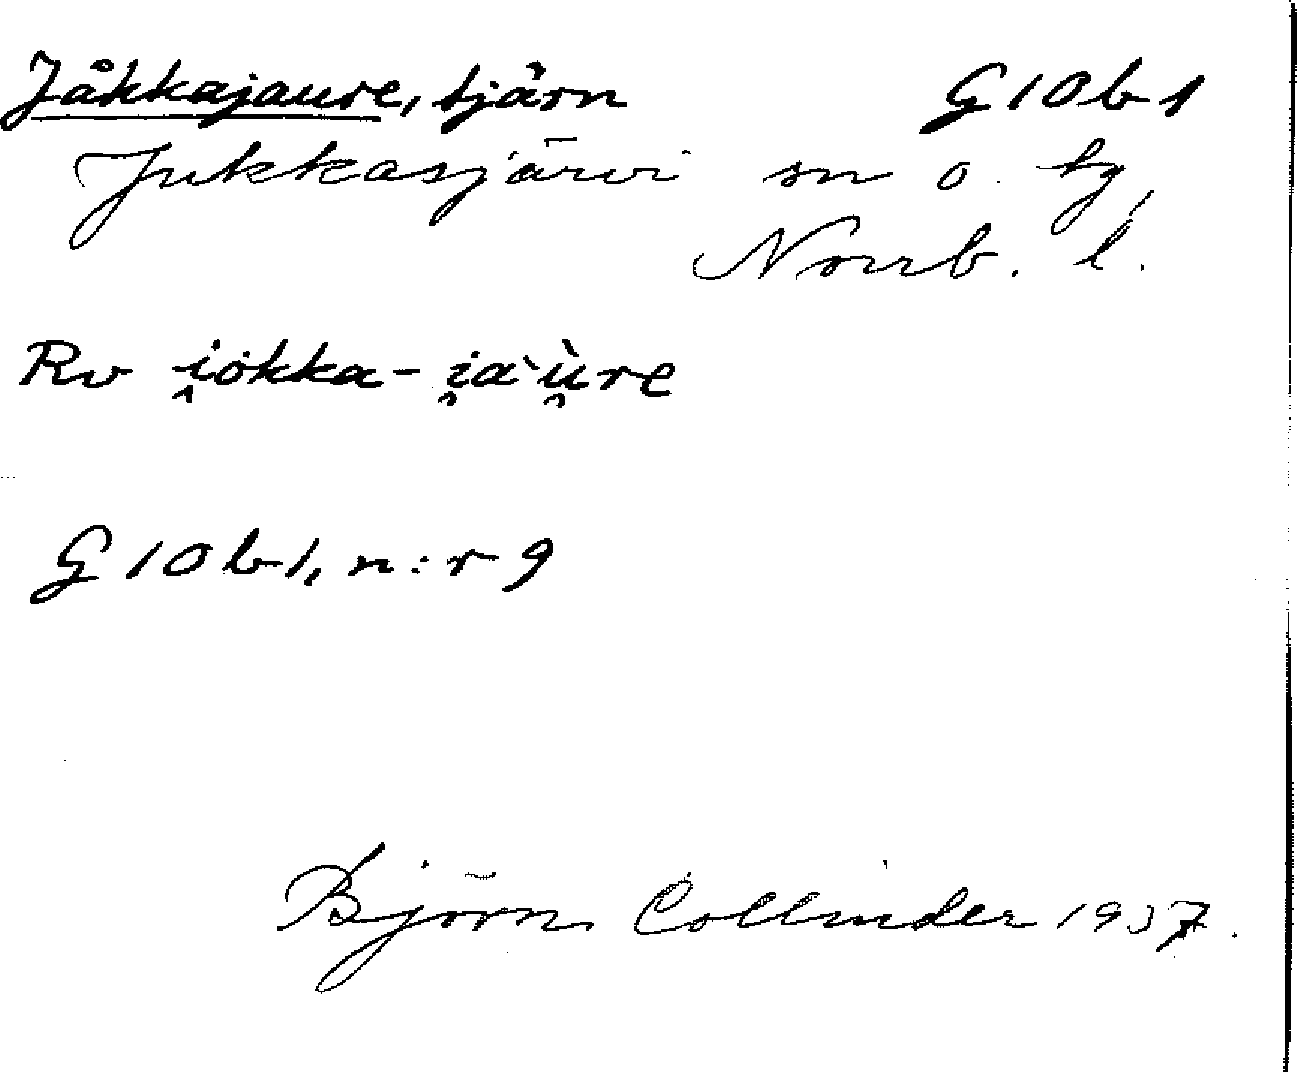 Jåkkajaure, tjärn G10b1
Jukkasjärvi sn o. tg,
Norrb. l.
Rv i̯ökka-i̯a`u̯̇re
G10b1, n:r 9
Björn Collinder 1937.